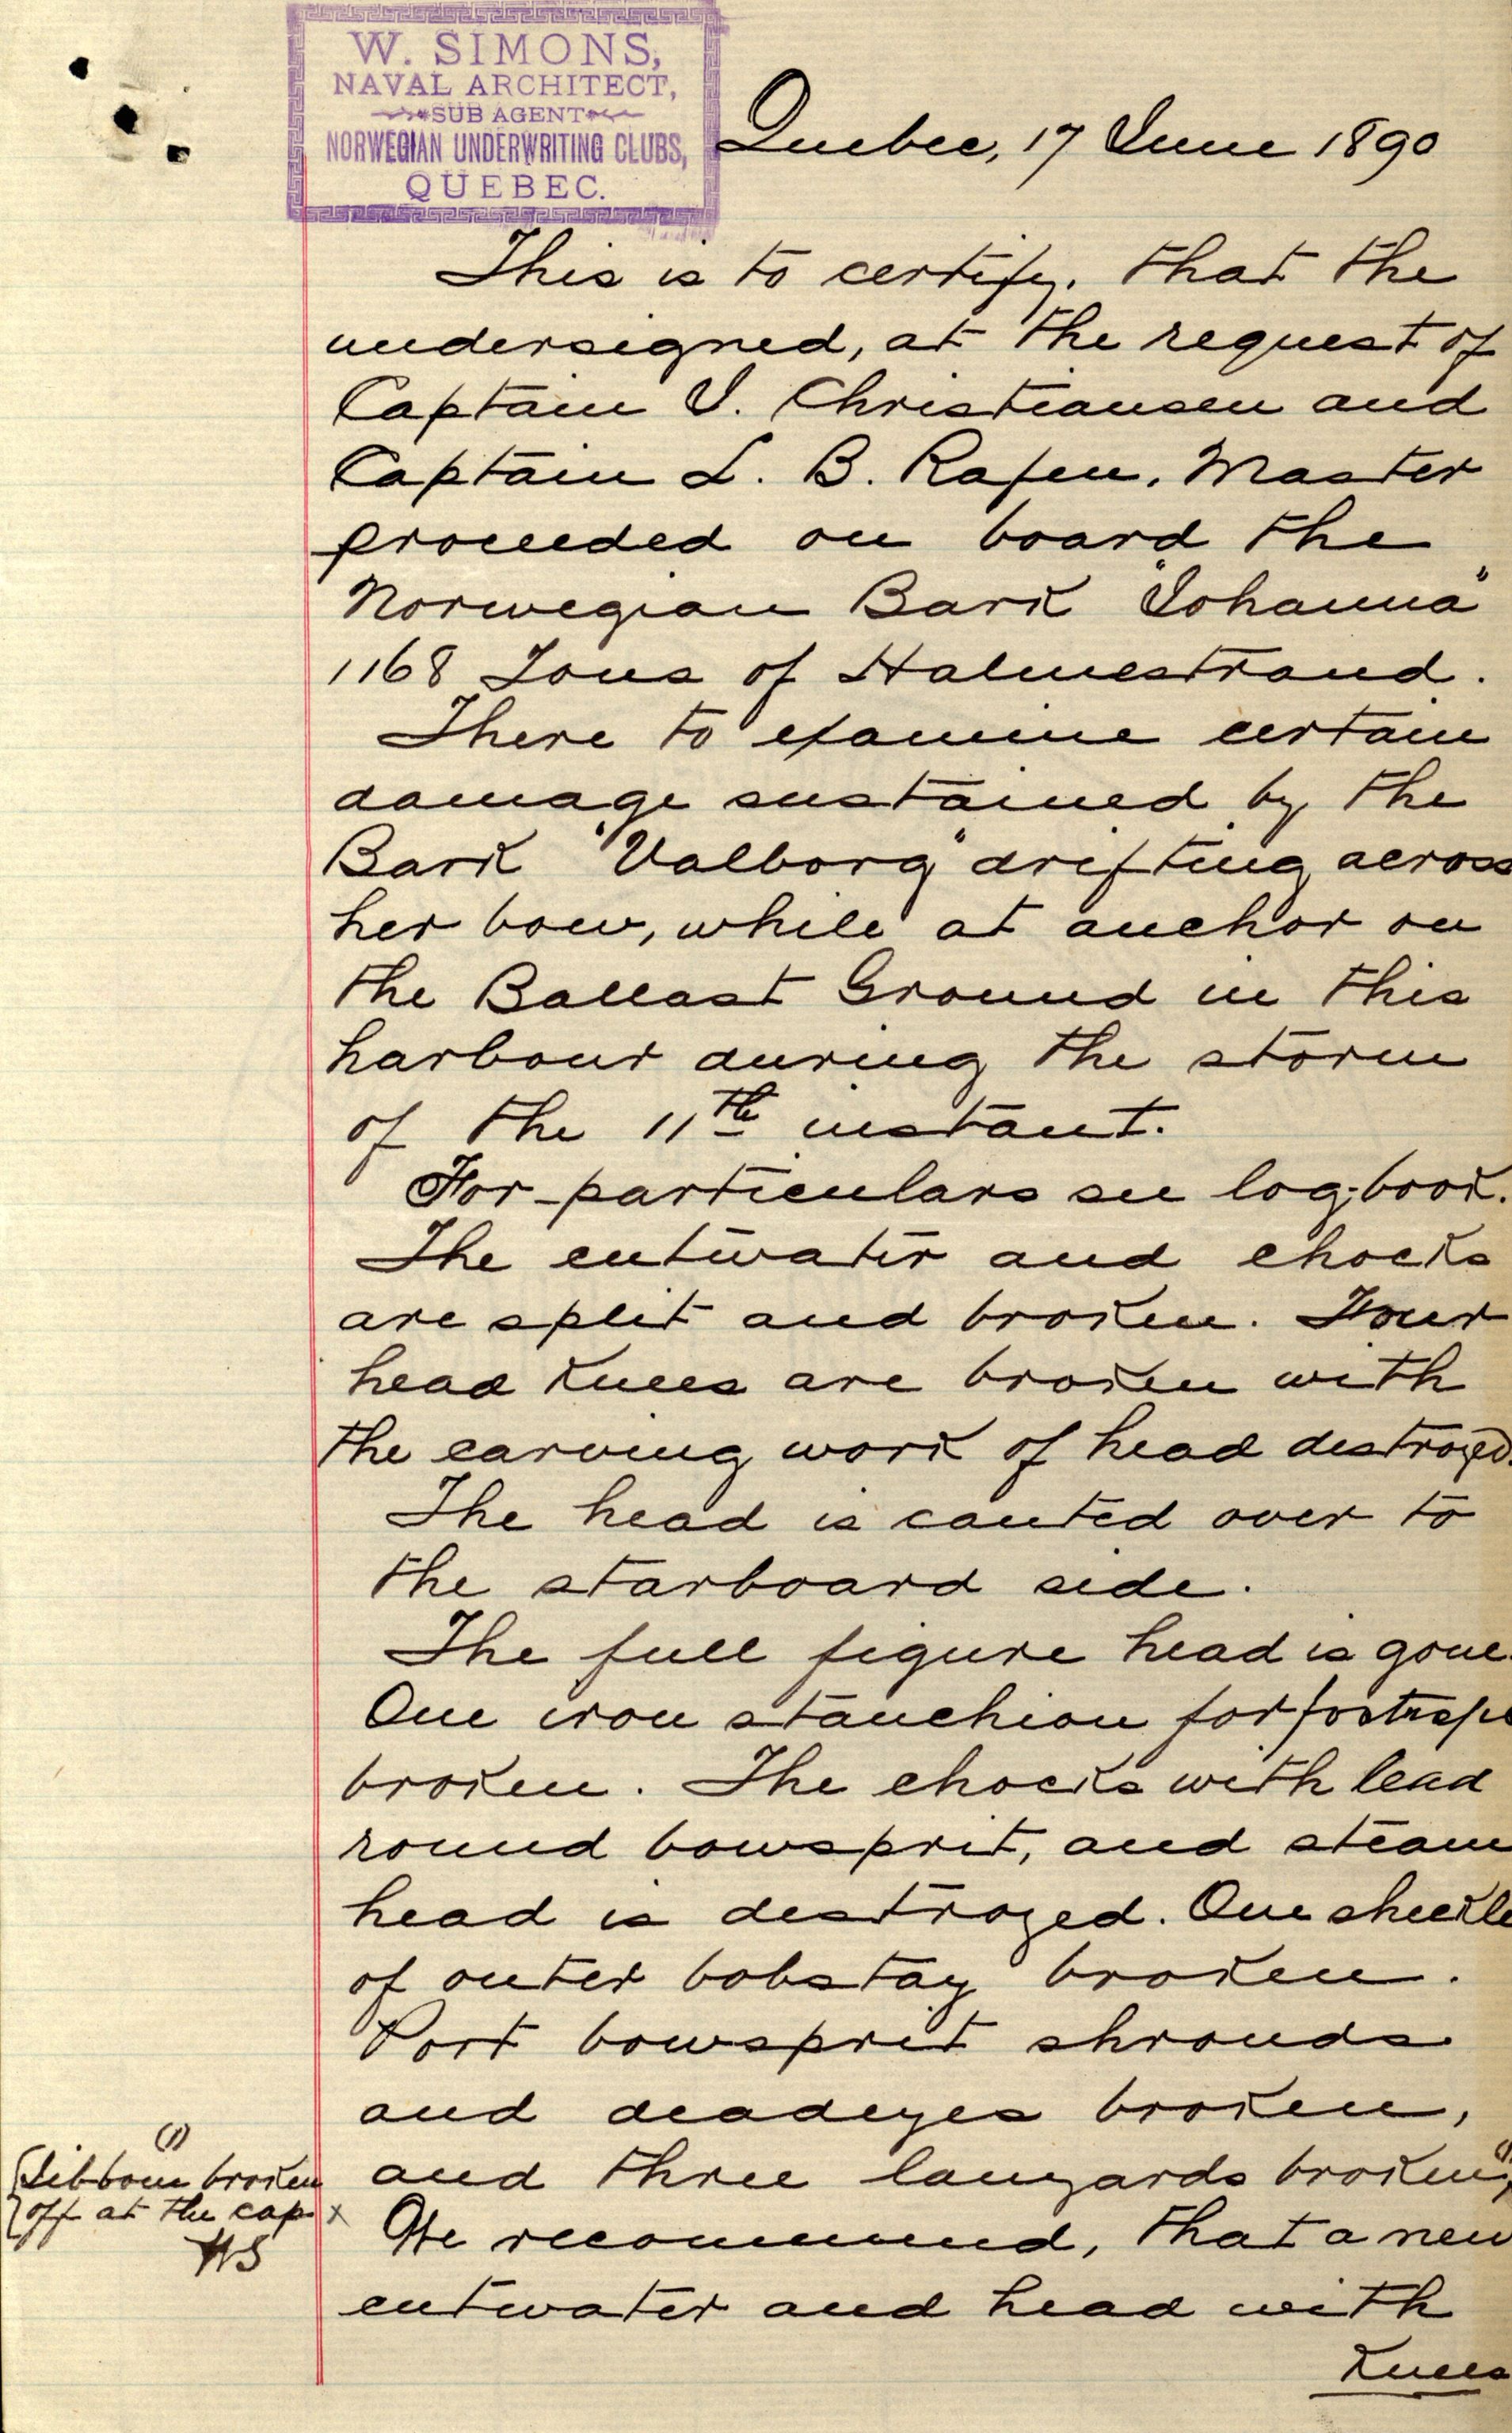 W. SIMONS,
NAVAL ARCHITECT,
SUB AGENT
NORWEGIAN UNDERWRITING CLUBS,
QUEBEC.
Quebec, 17 June 1890
This is to certify, that the
undersigned, at the request of
Captain J. Christiansen and
Captain L. B. Rafen, Master
proceeded on board the
Norwegian Bark "Johanna"
1168 Tons of Halmestrand.
There to examine certain
damage sustained by the
Bark "Valborg" drifting across
her bow, while at anchor on
the Ballast Ground in this
harbour during the storm
of the 11th instant.
For particulars see log-book.
The cutwater and chocks
are split and broken. Four
head knees are broken with
the carving work of head destroyed.
The head is canted over to
the starboard side.
The full figure head is gone.
One iron stanchion for footrope
broken. The chocks with lead
round bowsprit, and steam
head is destroyed. One sheckle
of outer bobstay broken.
Port bowsprit shrouds
and deadeyes broken,
and three lanyards broken (1)
(1)
Jibboom broken
off at the cap x
WS
We recommend, that a new
cutwater and head with
knees